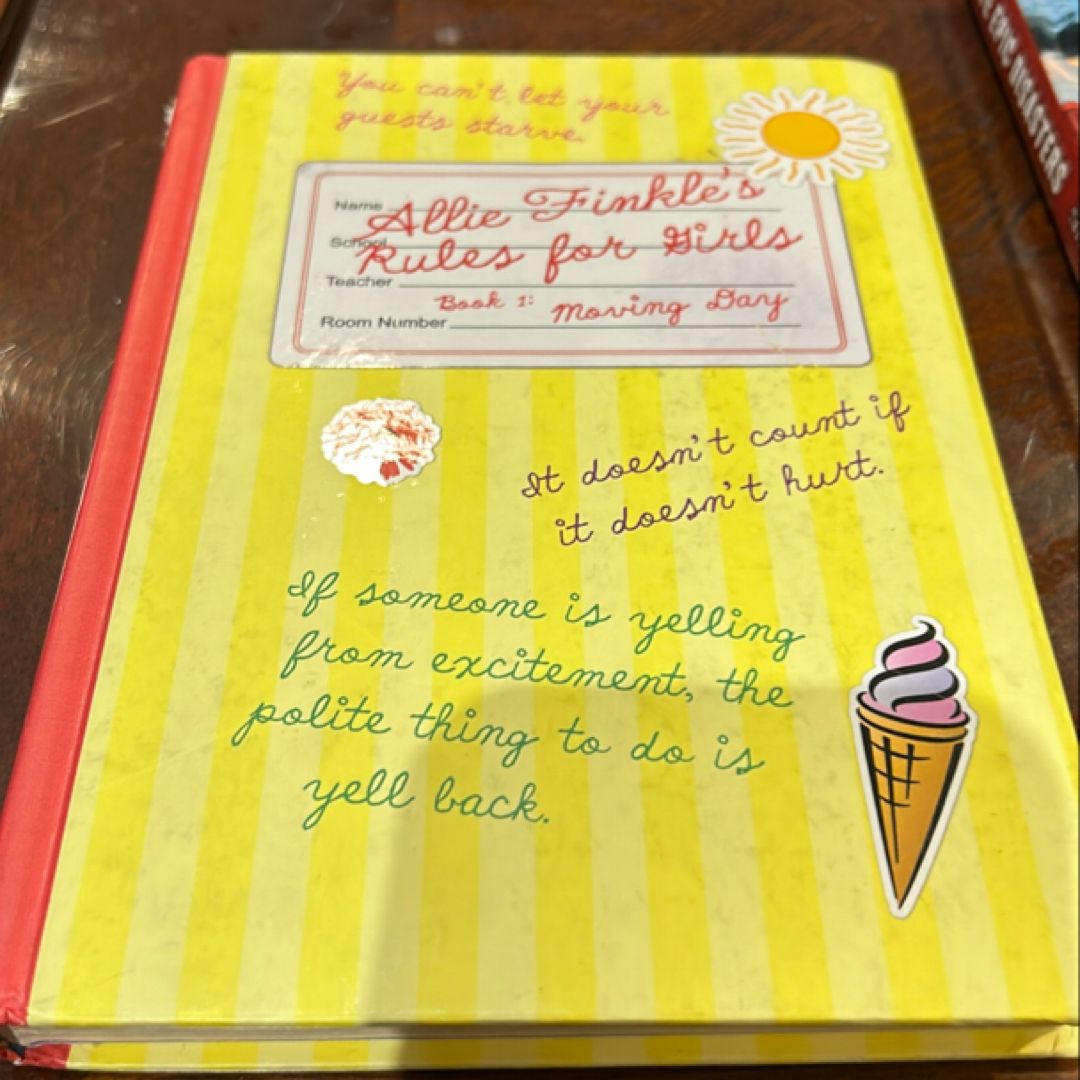 You can't let your
guests starve.
Name
Allie Finkle's
School
Rules for Girls
Teacher
Book 1: Moving Day
Room Number
It doesn't count if
it doesn't hurt.
If someone is yelling
from excitement, the
polite thing to do is
yell back.
EPIC DISASTERS